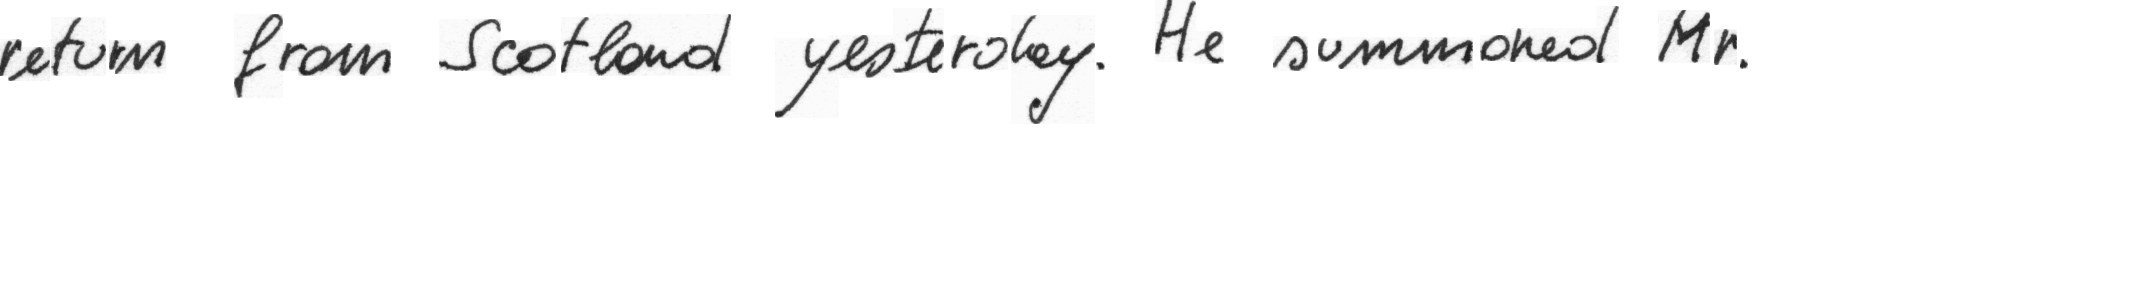 return from Scotland yesterday. He summoned Mr.